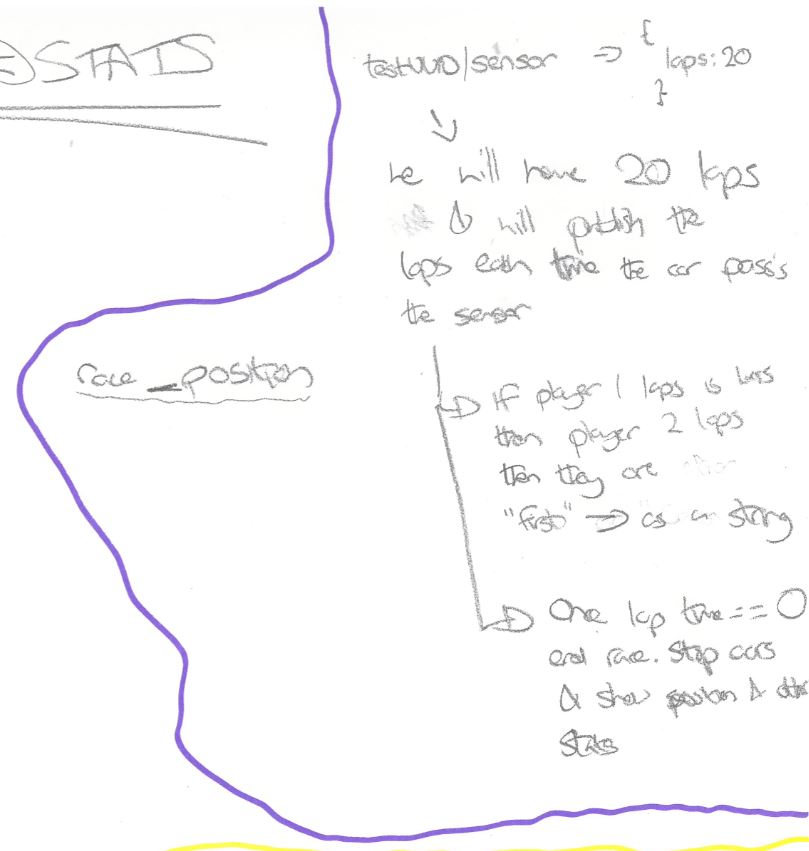 STATS
testUUID/sensor → {
laps: 20
}
we will have 20 laps
& will publish the
laps each time the car pass's
the sensor
race_position
if player 1 laps is less
then player 2 laps
then they are
"first" → as a string
One lap time == 0
end race. Stop cars
& show position & other
stats